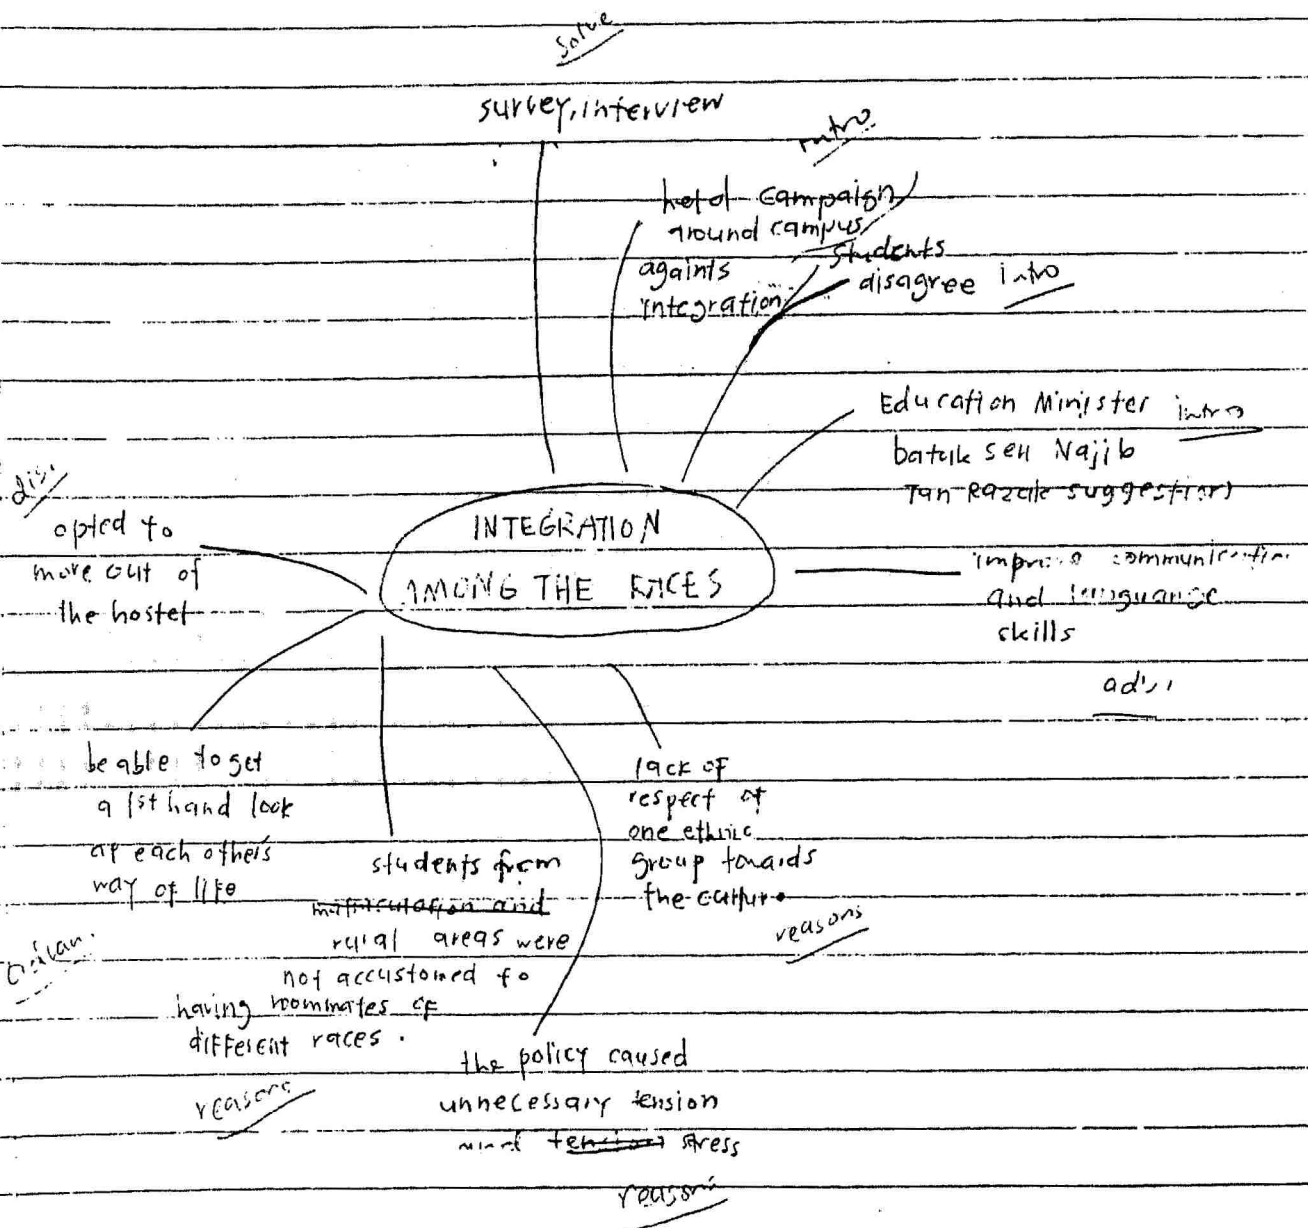 solve
survey, interview
intro
held campaign
around campus
againts
integration
students
disagree intro
Education Minister intro
Najib
Tan Razak suggestion)
INTEGRATION
AMONG THE RACES
dis.
opted to
move out of
the hostel
improve communication
and languange
skills
be able to get
a 1st hand look
at each other's
way of life
students from
matriculation and
rural areas were
not accustomed to
having roommates of
different races.
reasons
lack of
respect of
one ethnic
group towards
the culture
reasons
the policy caused
unnecessary tension
and tension stress
reasons